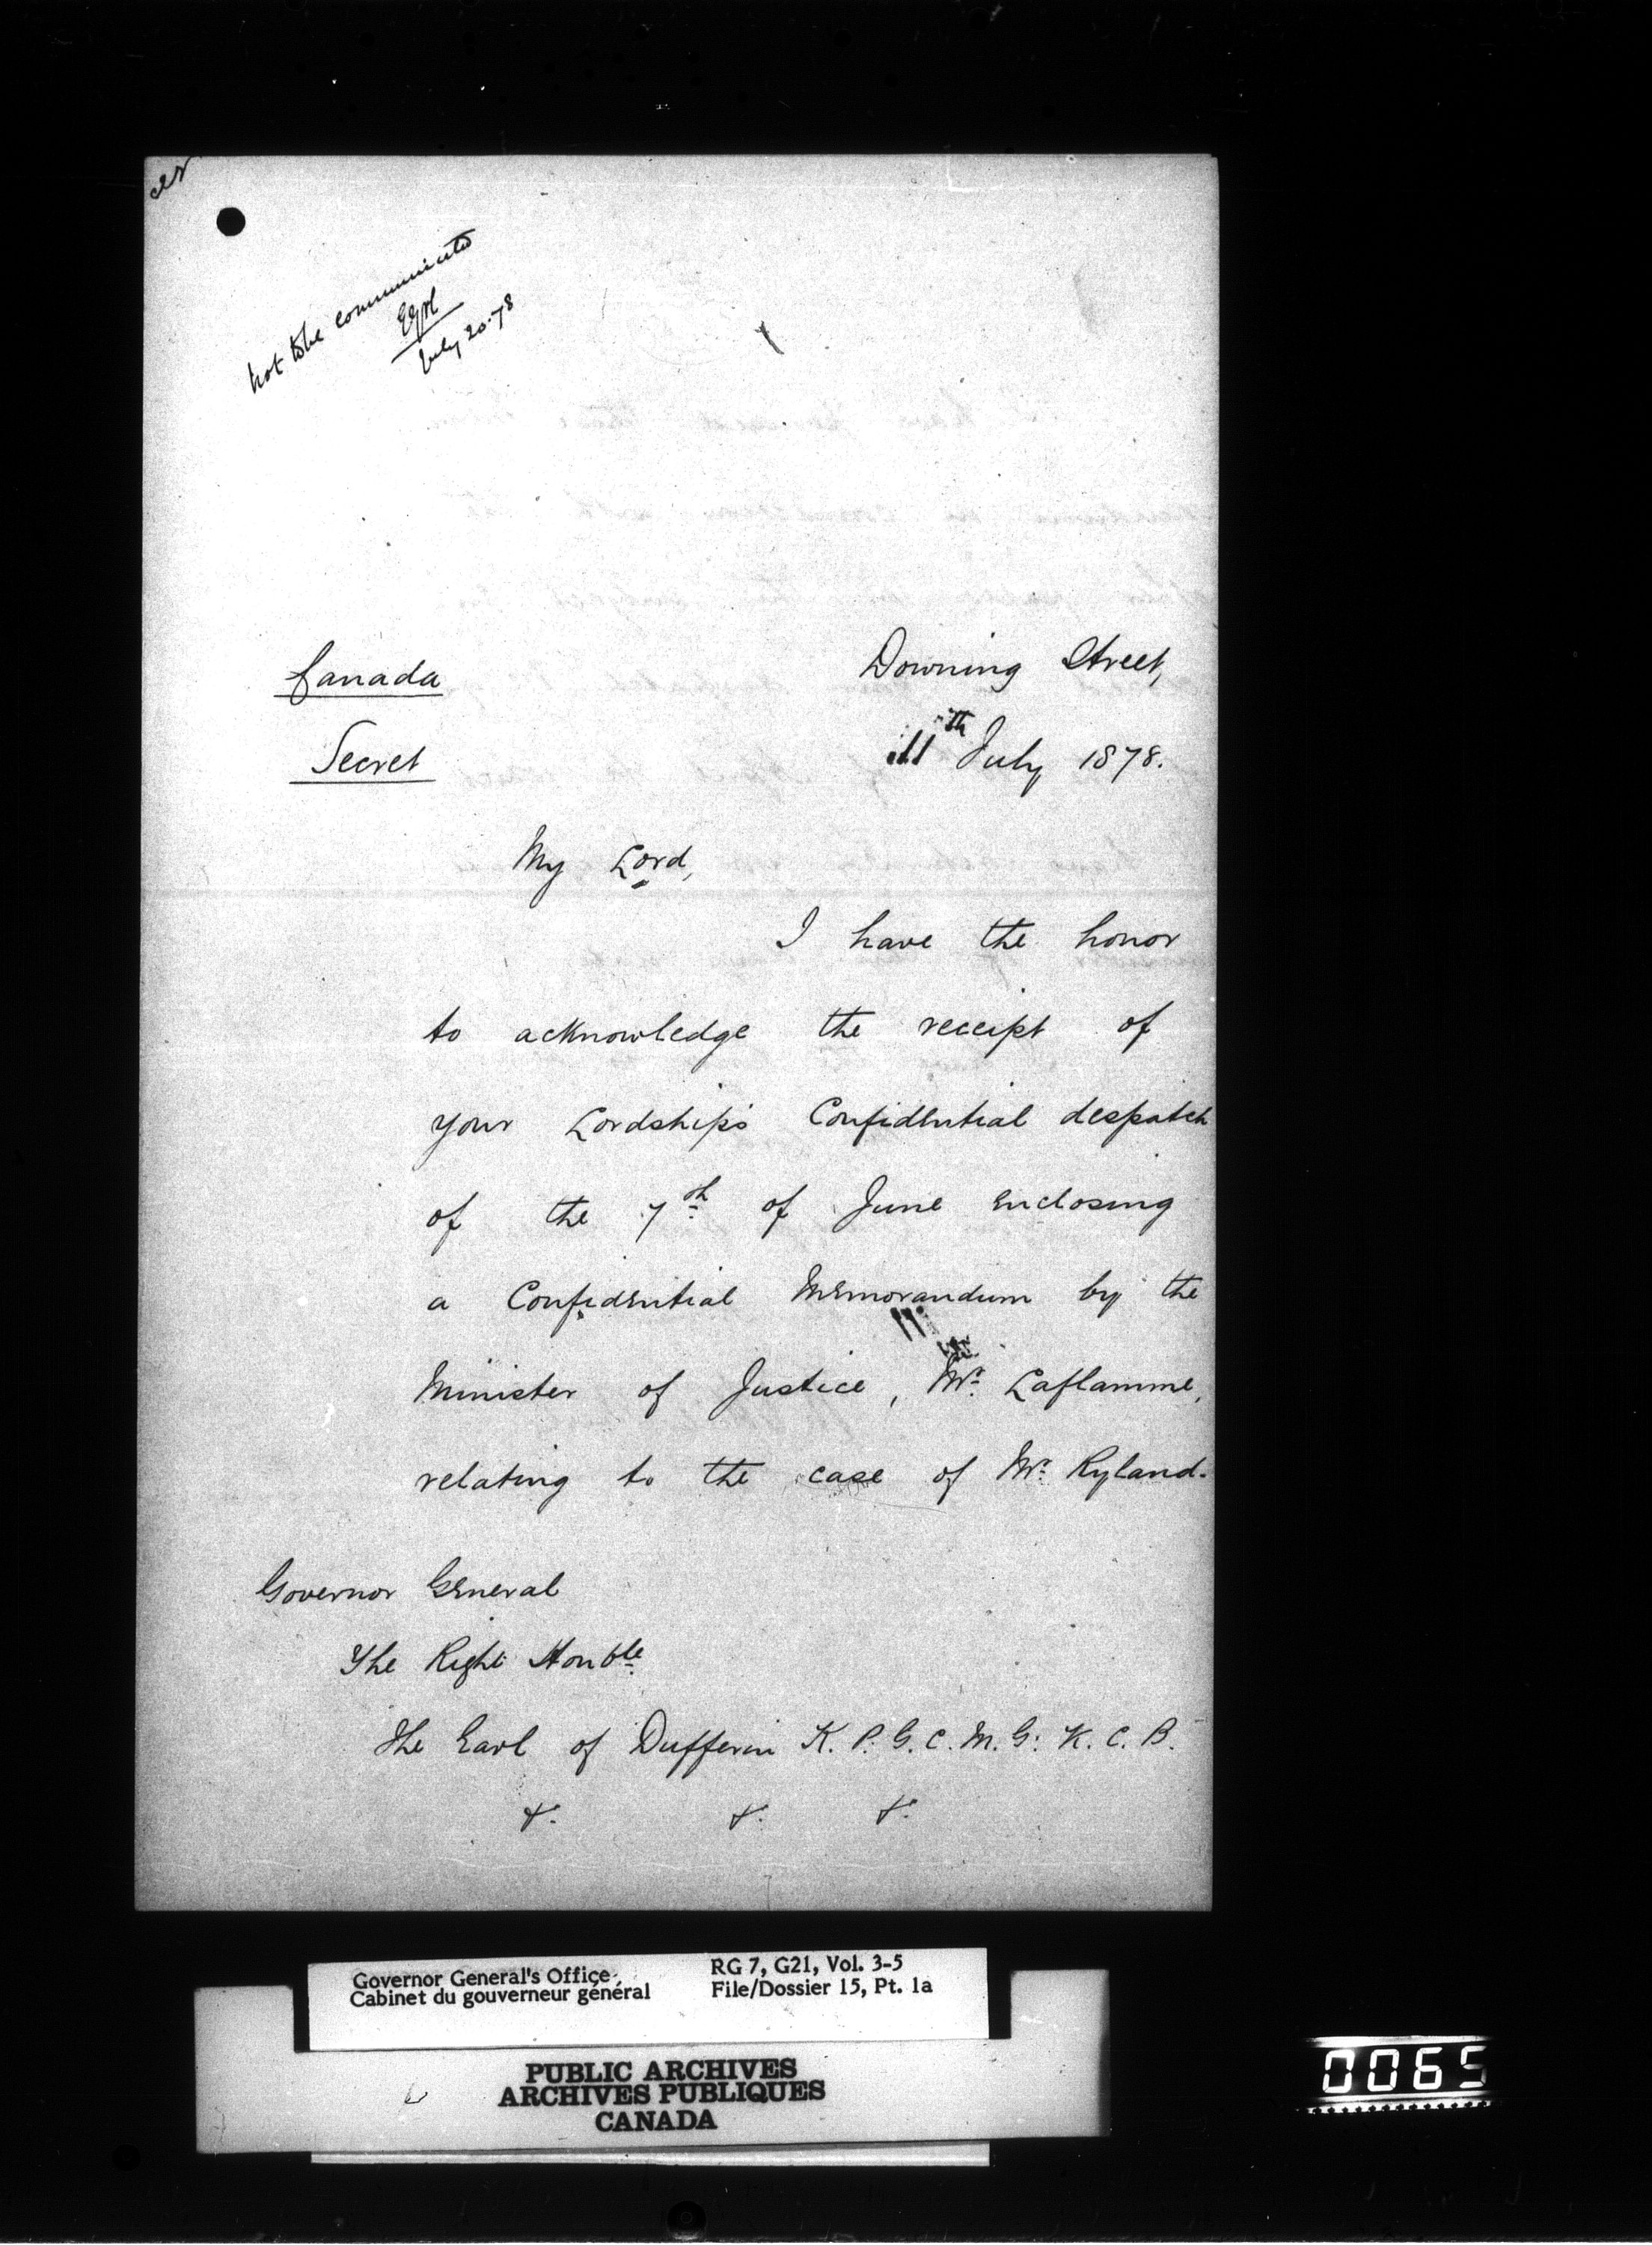 Not to be communicated
July 20.78
Canada
Downing Street,
Secret
11th July 1878.
My Lord,
I have the honor
to acknowledge the receipt of
your Lordship's Confidential despatch
of the 7th of June enclosing
a Confidential Memorandum by the
Minister of Justice, Mr. Laflamme,
relating to the case of Mr. Ryland.
Governor General
The Right Honble.
The Earl of Dufferin K. P. G. C. M. G: K. C. B.
&. &. &.
Governor General's Office
Cabinet du gouverneur général
RG 7, G21, Vol. 3-5
File/Dossier 15, Pt. 1a
PUBLIC ARCHIVES
ARCHIVES PUBLIQUES
CANADA
0065